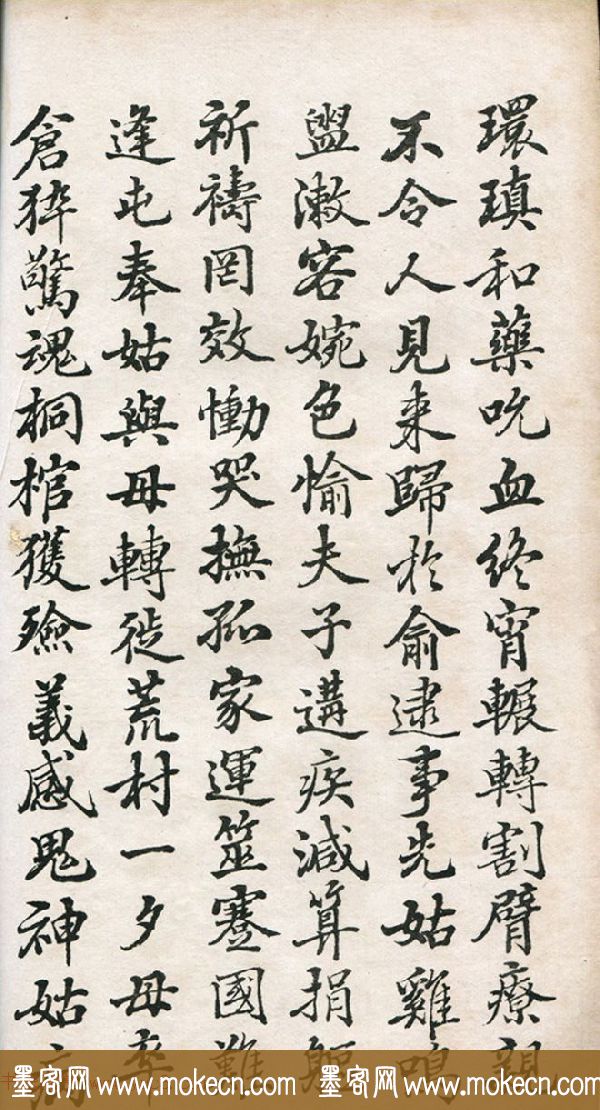 環瑱和藥吮血終宵輾轉割臂療親
不令人見来歸於俞逮事先姑雞鳴
盥漱容婉色愉夫子遘疾減算捐軀
祈禱罔效慟哭撫孤家運筮蹇國難
逢屯奉姑與母轉徙荒村一夕母卒
倉猝驚魂桐棺獲殮義感鬼神姑
墨客网 www.mokecn.com 墨客网 www.mokecn.com